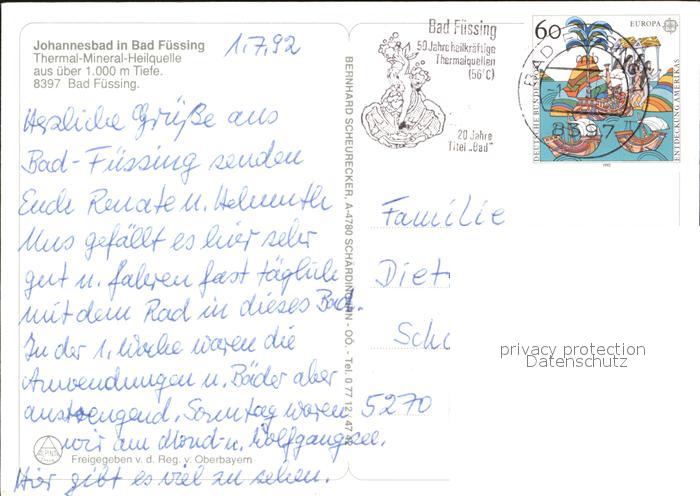 Johannesbad in Bad Füssing
Thermal-Mineral-Heilquelle
aus über 1.000 m Tiefe.
8397 Bad Füssing.
1.7.92
Herzliche Grüße aus
Bad-Füssing senden
Euch Renate u. Helmuth
Uns gefällt es hier sehr
gut u. fahren fast täglich
mit dem Rad in dieses Bad.
In der 1. Woche waren die
Anwendungen u. Bäder aber
anstrengend. Sonntag waren
wir am Mond-u. Wolfgangsee.
Freigegeben v. d. Reg. v. Oberbayern
Hier gibt es viel zu sehen.
BERNHARD SCHEURECKER, A-4780 SCHÄRDING/INN - OÖ. - Tel. 0 77 12
Bad Füssing
50 Jahre heilkräftige
Thermalquellen
(56°C)
20 Jahre
Titel „Bad"
60
EUROPA
DEUTSCHE BUNDESPOST
ENTDECKUNG AMERIKAS
1992
BAD
8397
Familie
Diet
Sch
5270
privacy protection
Datenschutz